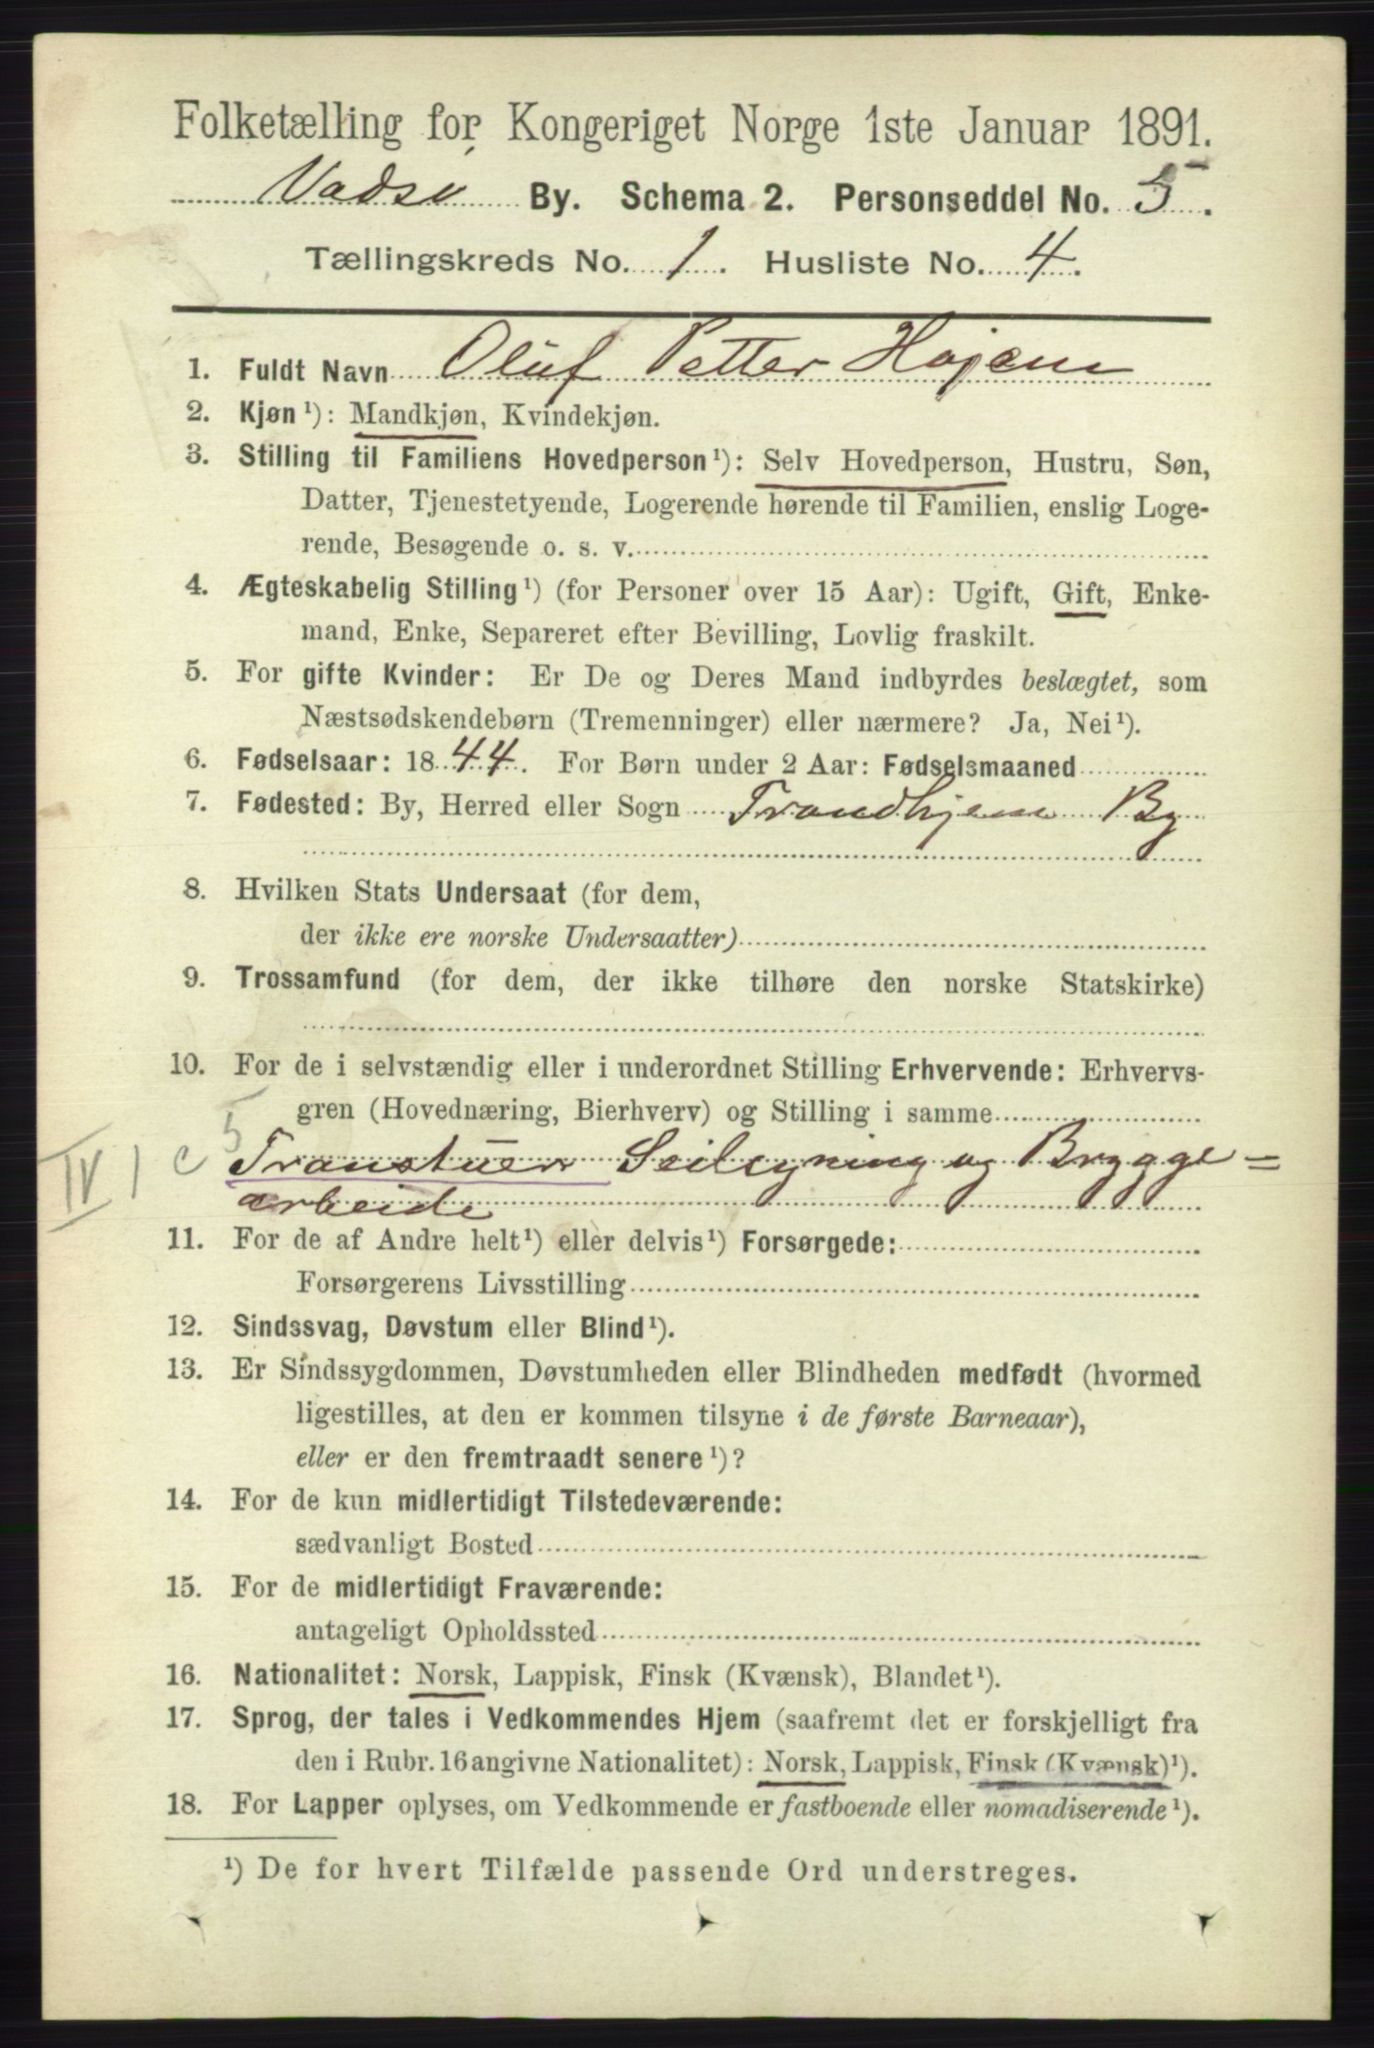 Folketælling for Kongeriget Norge 1ste Januar 1891.
Vadsø By. Schema 2. Personseddel No. 5.
Tællingskreds No. 1. Husliste No. 4.
1. Fuldt Navn Oluf Petter Hojem
2. Kjøn ¹): Mandkjøn, Kvindekjøn.
3. Stilling til Familiens Hovedperson ¹): Selv Hovedperson, Hustru, Søn,
Datter, Tjenestetyende, Logerende hørende til Familien, enslig Loge-
rende, Besøgende o. s. v.
4. Ægteskabelig Stilling ¹) (for Personer over 15 Aar): Ugift, Gift, Enke-
mand, Enke, Separeret efter Bevilling, Lovlig fraskilt.
5. For gifte Kvinder: Er De og Deres Mand indbyrdes beslægtet, som
Næstsødskendebørn (Tremenninger) eller nærmere? Ja, Nei ¹).
6. Fødselsaar: 1844. For Børn under 2 Aar: Fødselsmaaned
7. Fødested: By, Herred eller Sogn Trondhjem By
8. Hvilken Stats Undersaat (for dem,
der ikke ere norske Undersaatter)
9. Trossamfund (for dem, der ikke tilhøre den norske Statskirke)
10. For de i selvstændig eller i underordnet Stilling Erhvervende: Erhvervs-
gren (Hovednæring, Bierhverv) og Stilling i samme
IV 1 c 5 Seilsyning og Brygge=
arbeide
11. For de af Andre helt ¹) eller delvis ¹) Forsørgede:
Forsørgerens Livsstilling
12. Sindssvag, Døvstum eller Blind ¹).
13. Er Sindssygdommen, Døvstumheden eller Blindheden medfødt (hvormed
ligestilles, at den er kommen tilsyne i de første Barneaar),
eller er den fremtraadt senere ¹)?
14. For de kun midlertidigt Tilstedeværende:
sædvanligt Bosted
15. For de midlertidigt Fraværende:
antageligt Opholdssted
16. Nationalitet: Norsk, Lappisk, Finsk (Kvænsk), Blandet ¹).
17. Sprog, der tales i Vedkommendes Hjem (saafremt det er forskjelligt fra
den i Rubr. 16 angivne Nationalitet): Norsk, Lappisk, Finsk (Kvænsk) ¹).
18. For Lapper oplyses, om Vedkommende er fastboende eller nomadiserende ¹).
¹) De for hvert Tilfælde passende Ord understreges.